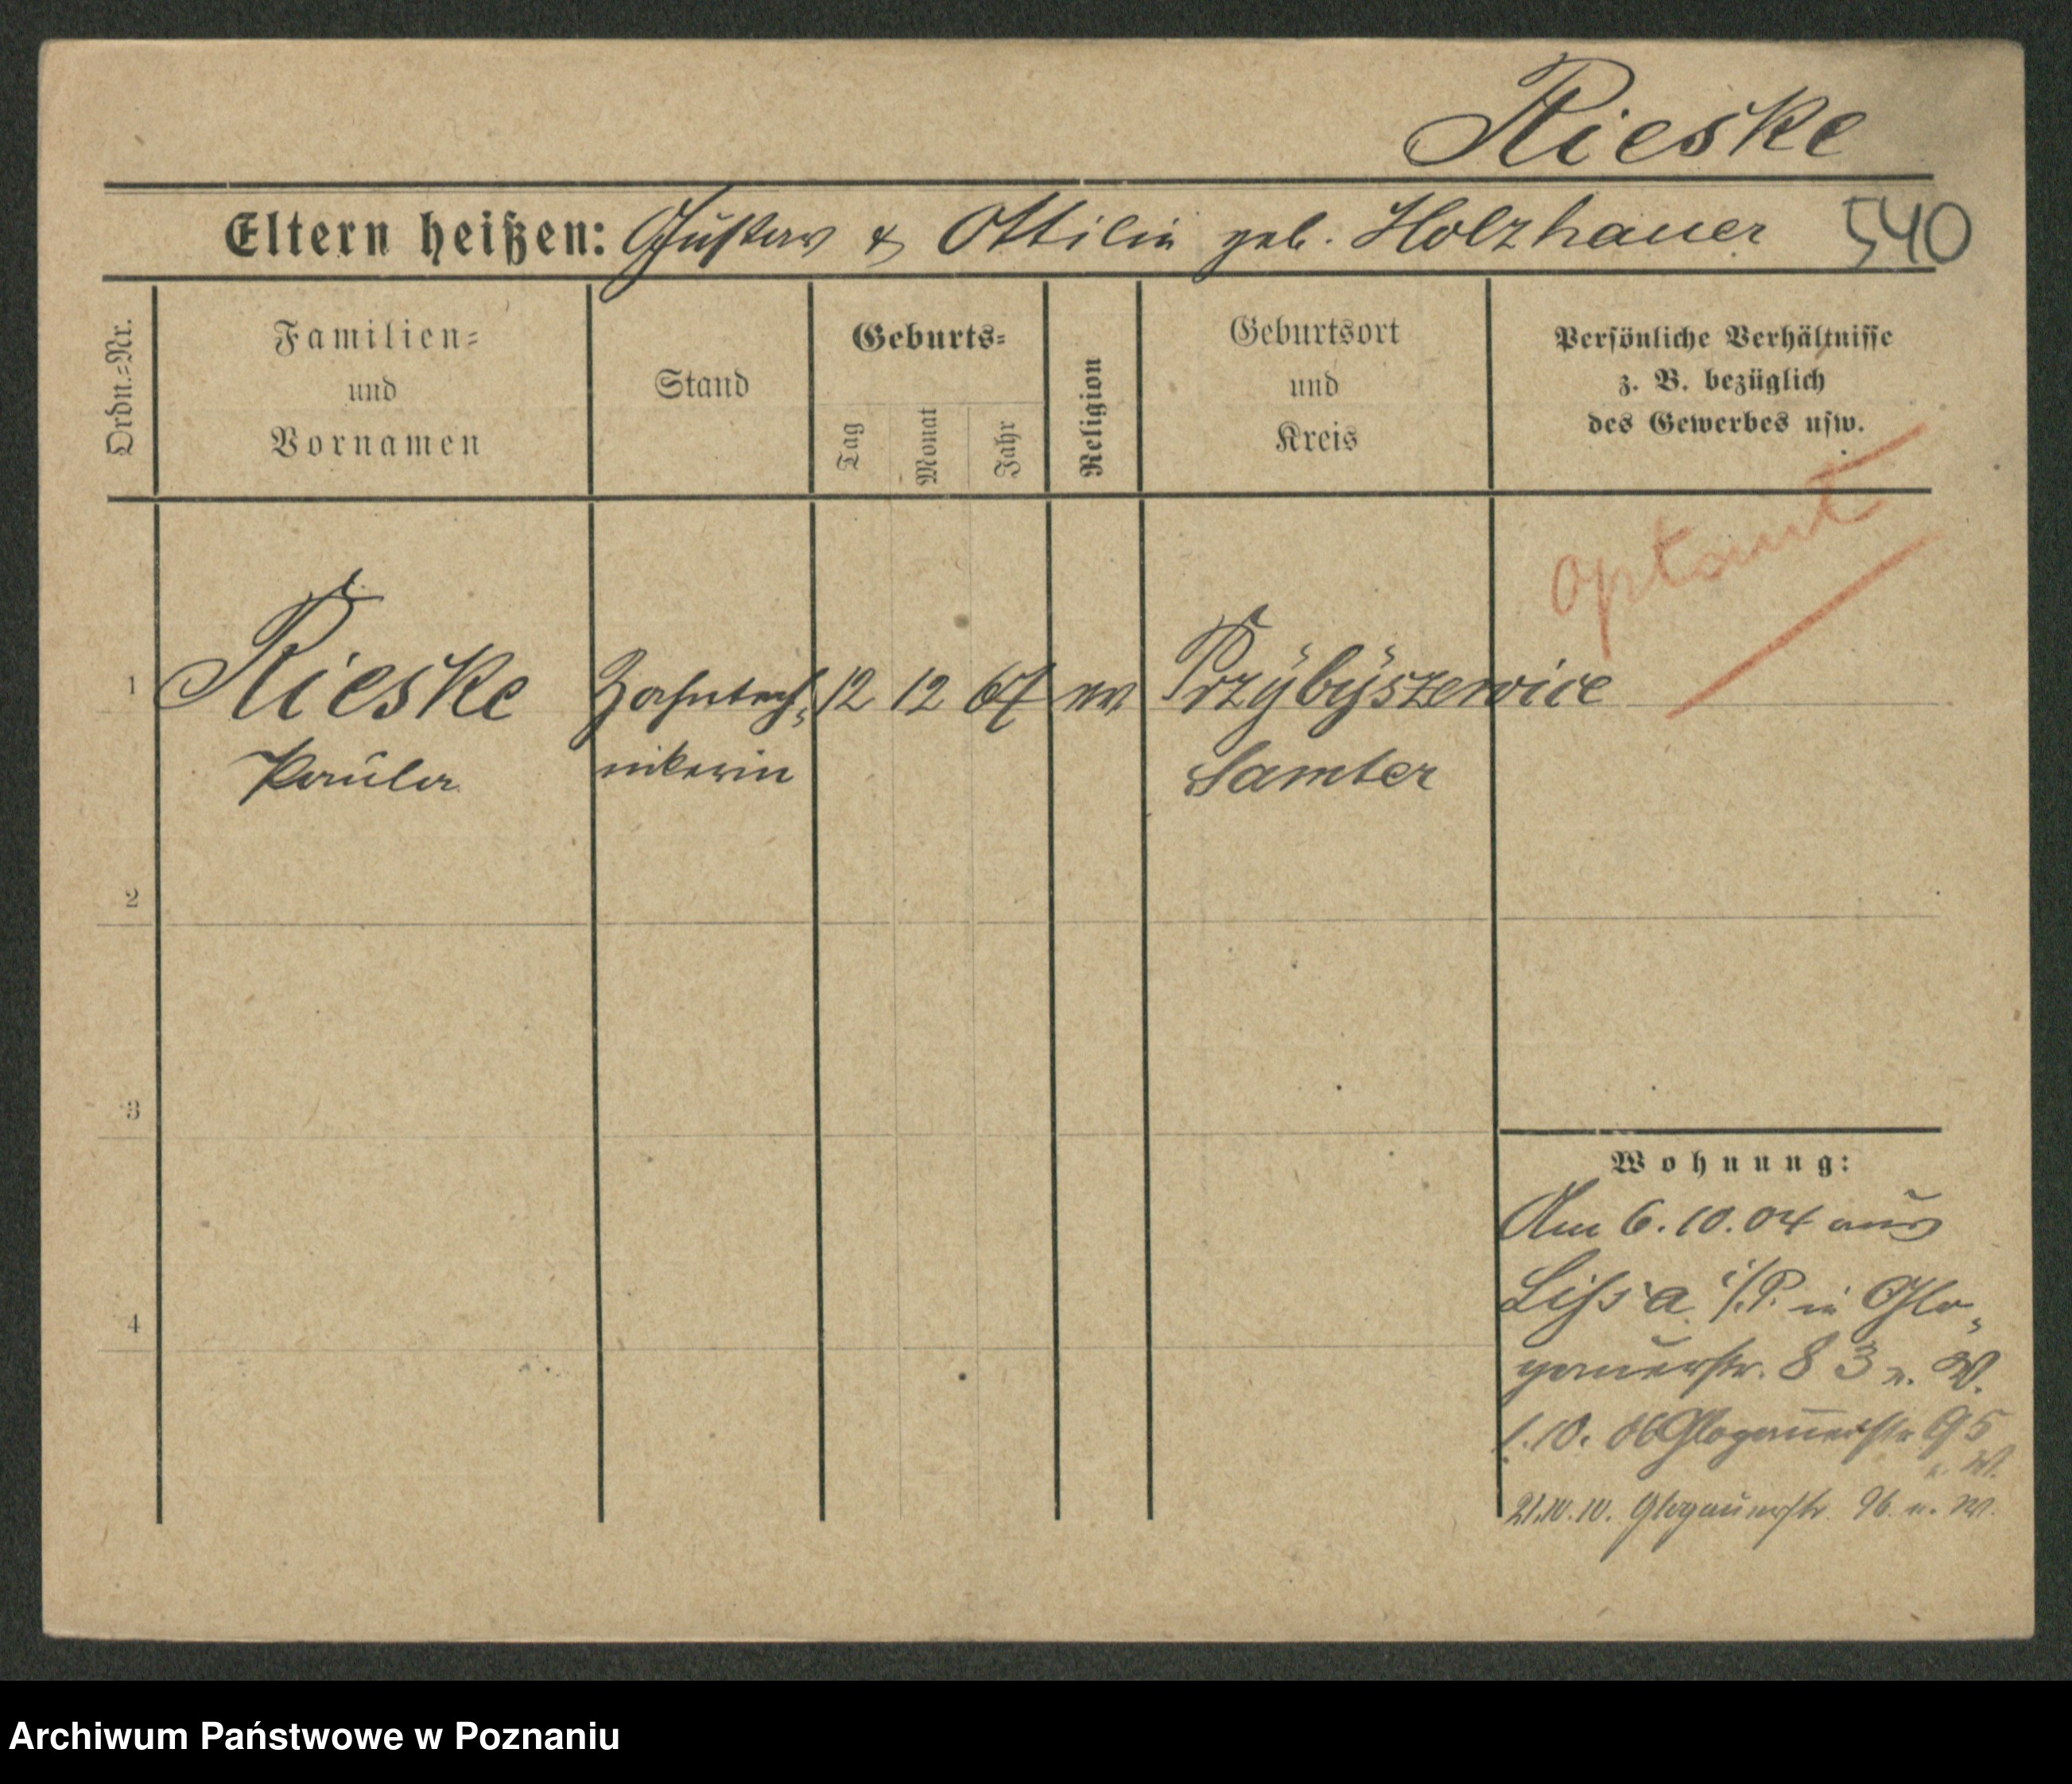 Rieske
Eltern heißen: Gustav & Ottilie geb. Holzhauer 540
Ordn.=Nr.
Familien=
und
Vornamen
Stand
Geburts=
Tag
Monat
Jahr
Religion
Geburtsort
und
Kreis
Persönliche Verhältnisse
z. B. bezüglich
des Gewerbes usw.
Optant
1 Rieske Zahntech= 12 12 67 ev Przybyszewice
Paula nikerin Samter
2
3
4
Wohnung:
Am 6.10.04 aus
Lissa i/P. in Glo=
gauerstr. 83 n. W.
1.10. 06 Glogauerstr 95
n. W.
21.10.10. Glogauerstr. 96 n. W.
Archiwum Państwowe w Poznaniu